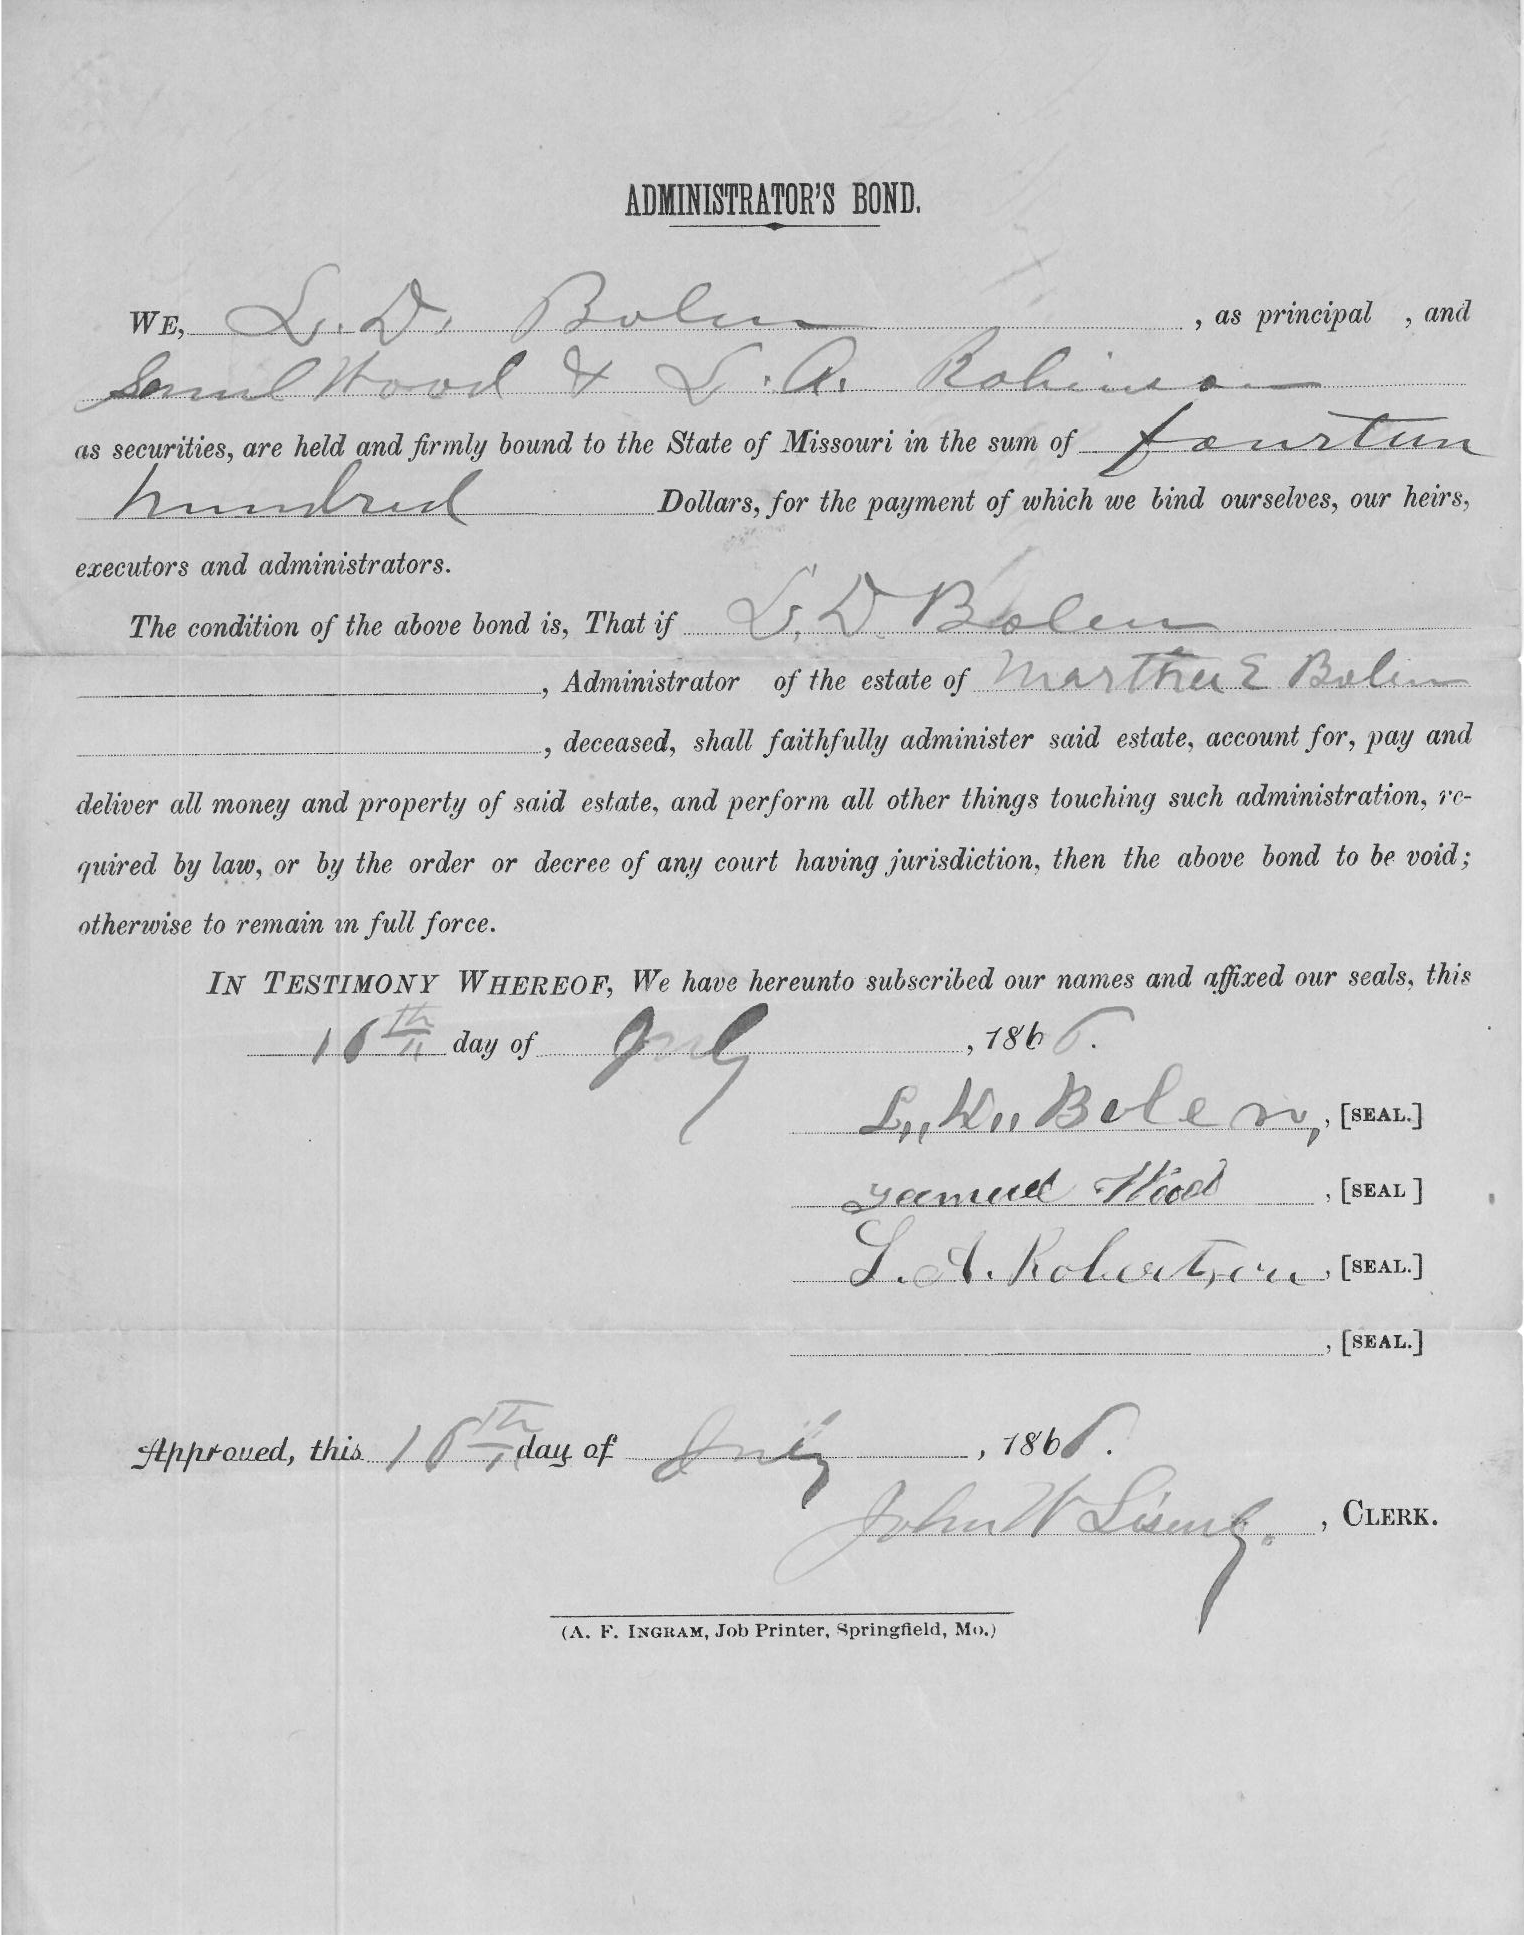 ADMINISTRATOR'S BOND.
WE, L. D. Bolen , as principal , and
Samul Wood & L. A. Robinson
as securities, are held and firmly bound to the State of Missouri in the sum of fourteen
hundred Dollars, for the payment of which we bind ourselves, our heirs,
executors and administrators.
The condition of the above bond is, That if L. D. Bolen
, Administrator of the estate of Martha E Bolen
, deceased, shall faithfully administer said estate, account for, pay and
deliver all money and property of said estate, and perform all other things touching such administration, re-
quired by law, or by the order or decree of any court having jurisdiction, then the above bond to be void;
otherwise to remain in full force.
IN TESTIMONY WHEREOF, We have hereunto subscribed our names and affixed our seals, this
16th day of July , 1866.
L,, D,, Bolen, , [SEAL.]
Samuel Wood , [SEAL ]
L. A. Robertson , [SEAL.]
, [SEAL.]
Approved, this 16th day of July , 1866.
John W Lisenby. , CLERK.
(A. F. INGRAM, Job Printer, Springfield, Mo.)